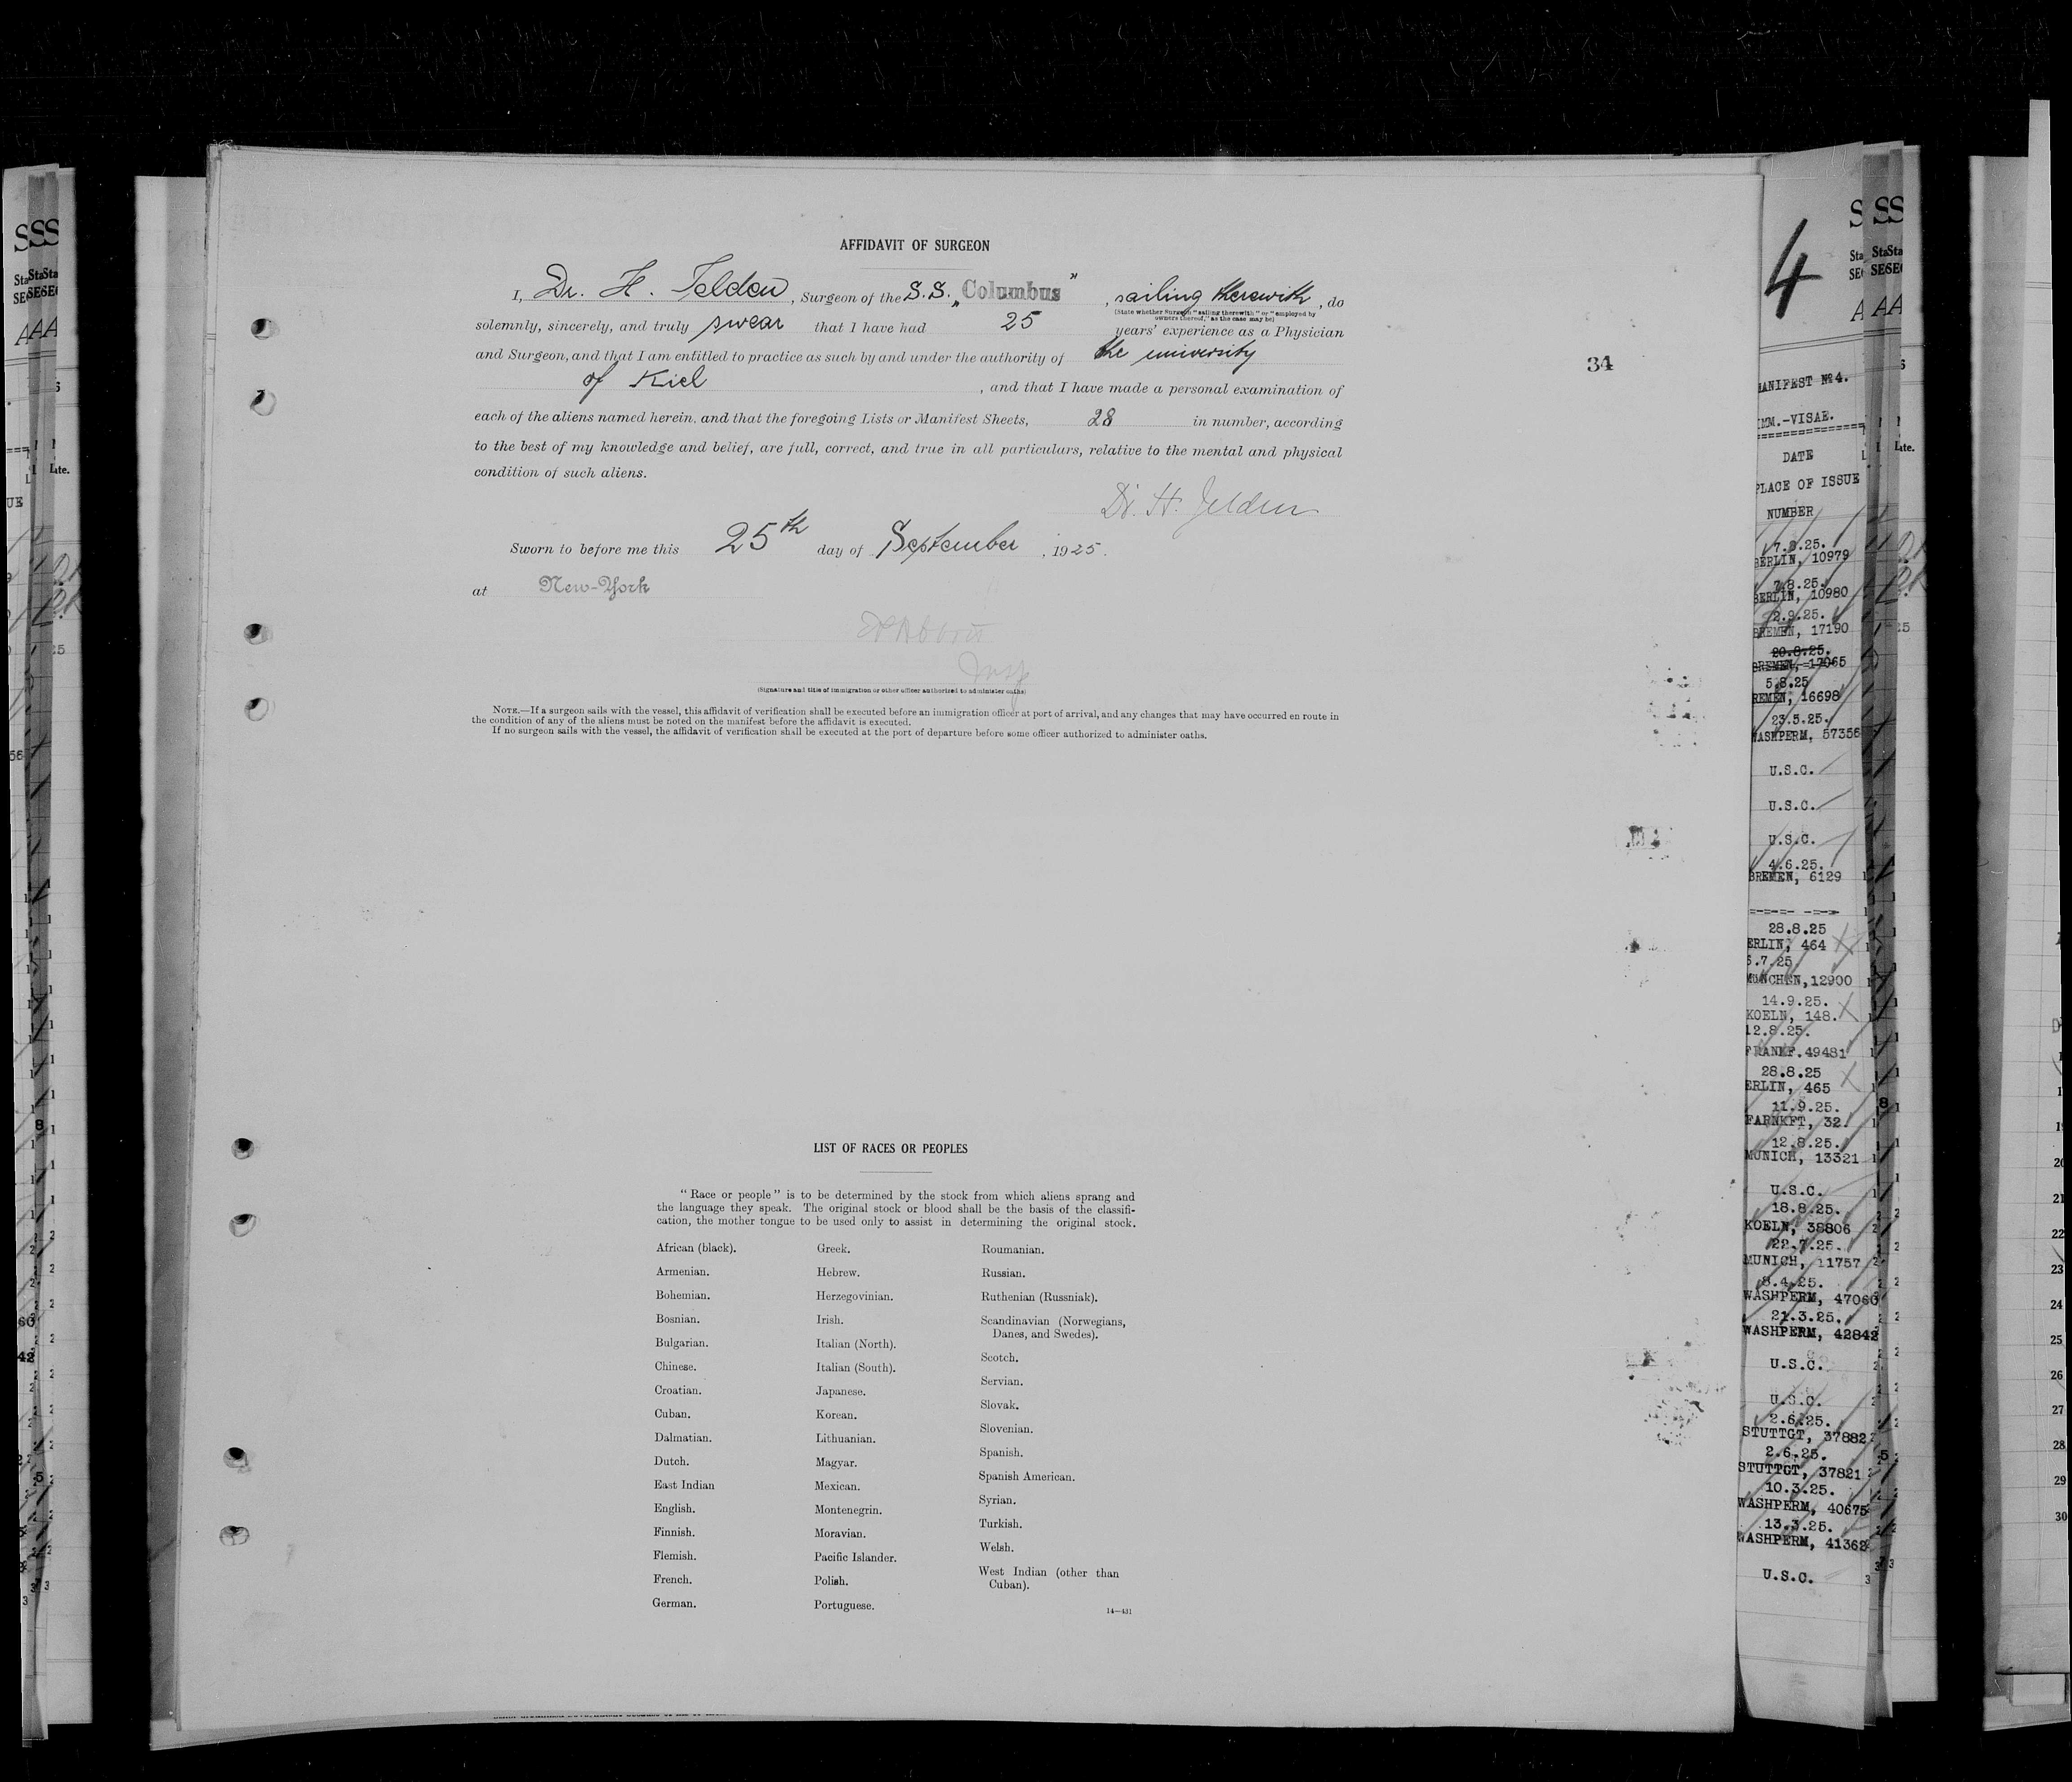 AFFIDAVIT OF SURGEON
I, Dr. H. Jelden, Surgeon of the S.S. „Columbus", sailing therewith, do
(State whether Surgeon "sailing therewith" or "employed by
owners thereof," as the case may be)
solemnly, sincerely, and truly swear that I have had 25 years' experience as a Physician
and Surgeon, and that I am entitled to practice as such by and under the authority of the university
of Kiel, and that I have made a personal examination of
each of the aliens named herein, and that the foregoing Lists or Manifest Sheets, 28 in number, according
to the best of my knowledge and belief, are full, correct, and true in all particulars, relative to the mental and physical
condition of such aliens.
Dr. H. Jelden
Sworn to before me this 25th day of September, 1925.
at New-York
Insp
(Signature and title of immigration or other officer authorized to administer oaths)
NOTE.—If a surgeon sails with the vessel, this affidavit of verification shall be executed before an immigration officer at port of arrival, and any changes that may have occurred en route in
the condition of any of the aliens must be noted on the manifest before the affidavit is executed.
If no surgeon sails with the vessel, the affidavit of verification shall be executed at the port of departure before some officer authorized to administer oaths.
34
LIST OF RACES OR PEOPLES
"Race or people" is to be determined by the stock from which aliens sprang and
the language they speak. The original stock or blood shall be the basis of the classifi-
cation, the mother tongue to be used only to assist in determining the original stock.
African (black).
Armenian.
Bohemian.
Bosnian.
Bulgarian.
Chinese.
Croatian.
Cuban.
Dalmatian.
Dutch.
East Indian
English.
Finnish.
Flemish.
French.
German.
Greek.
Hebrew.
Herzegovinian.
Irish.
Italian (North).
Italian (South).
Japanese.
Korean.
Lithuanian.
Magyar.
Mexican.
Montenegrin.
Moravian.
Pacific Islander.
Polish.
Portuguese.
Roumanian.
Russian.
Ruthenian (Russniak).
Scandinavian (Norwegians,
Danes, and Swedes).
Scotch.
Servian.
Slovak.
Slovenian.
Spanish.
Spanish American.
Syrian.
Turkish.
Welsh.
West Indian (other than
Cuban).
14—431
4
MANIFEST №4.
IMM.-VISAE.
DATE
PLACE OF ISSUE
NUMBER
7.8.25.
BERLIN, 10979
7.8.25.
BERLIN, 10980
2.9.25.
BREMEN, 17190
20.8.25.
BREMEN, 17065
5.8.25
REMEN, 16698
23.5.25.
WASHPERM, 57356
U.S.C.
U.S.C.
U.S.C.
4.6.25.
BREMEN, 6129
28.8.25
ERLIN, 464
6.7.25
MÜNCHEN, 12900
14.9.25.
KOELN, 148.
12.8.25.
FRANKF. 49481
28.8.25
ERLIN, 465
11.9.25.
FARNKFT, 32.
12.8.25.
MUNICH, 13321
U.S.C.
18.8.25.
KOELN, 38806
22.7.25.
MUNICH, 11757
8.4.25.
WASHPERM, 47060
21.3.25.
WASHPERM, 42842
U.S.C.
U.S.C.
2.6.25.
STUTTGT, 37882
2.6.25.
STUTTGT, 37821
10.3.25.
WASHPERM, 40675
13.3.25.
WASHPERM, 41362
U.S.C.
20
21
22
23
24
25
26
27
28
29
30